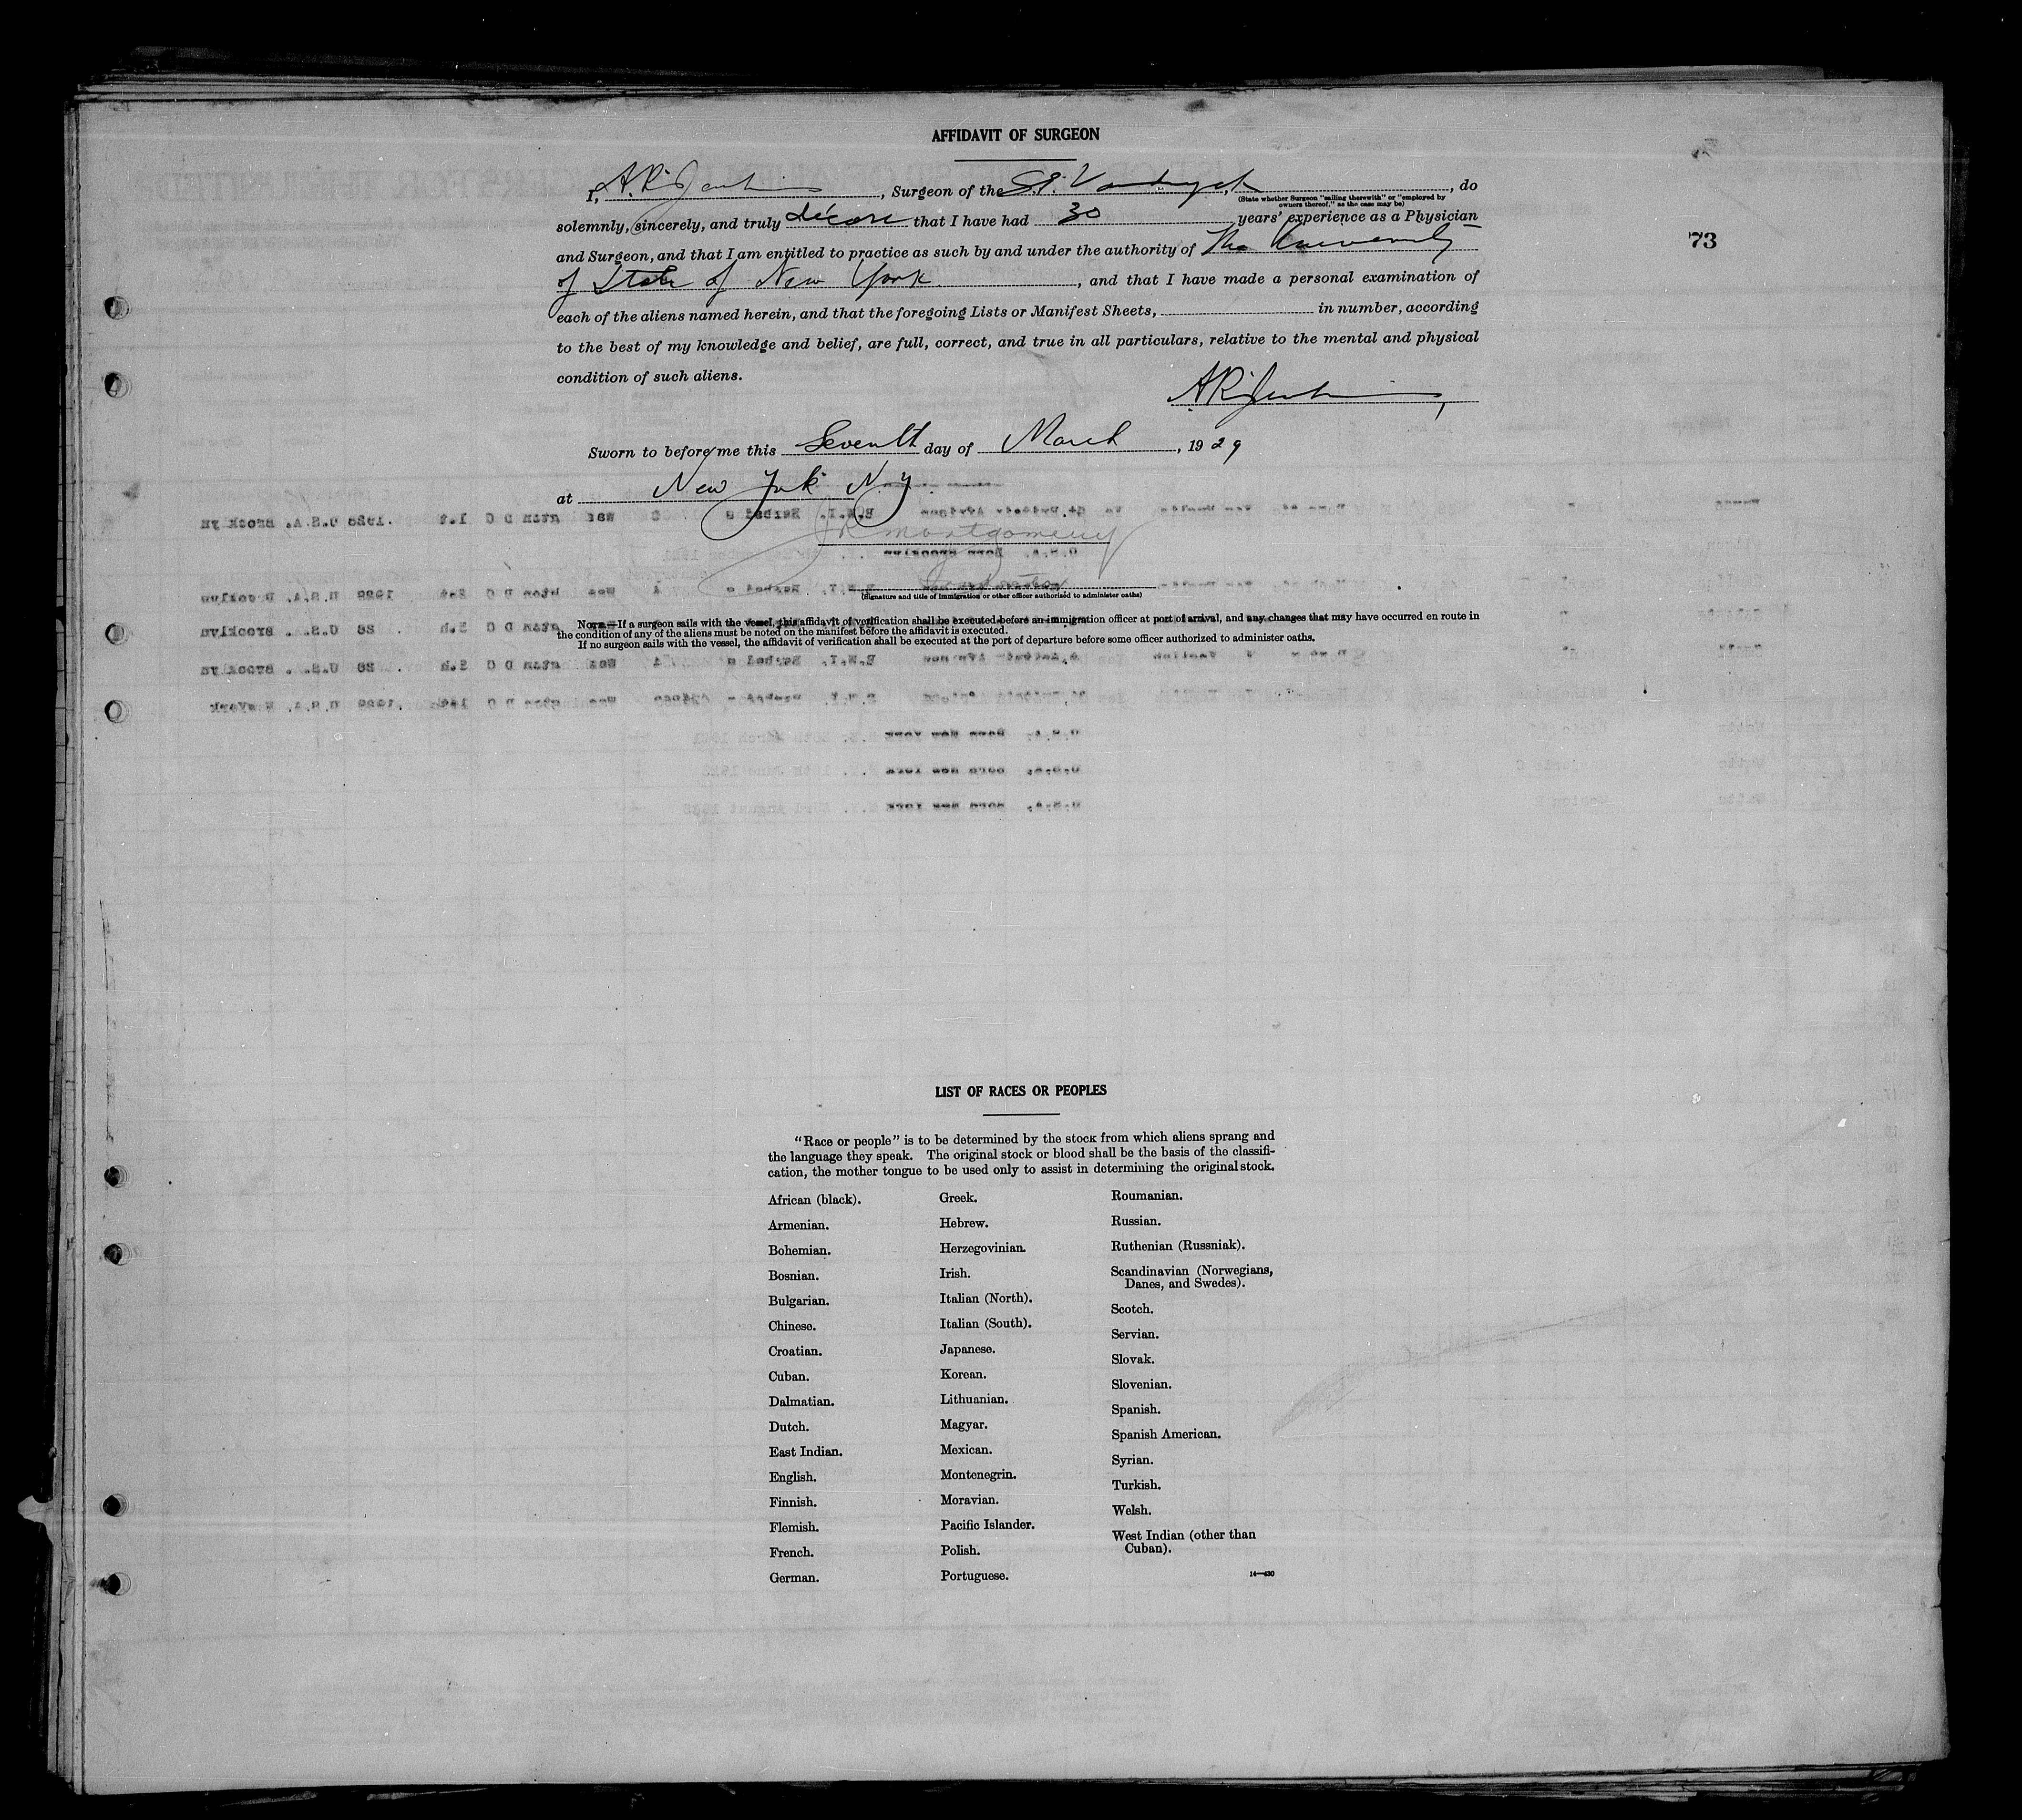 AFFIDAVIT OF SURGEON
I, A. R. Jenkins, Surgeon of the S.S. Vandyck, do
(State whether Surgeon "sailing therewith" or "employed by
owners thereof," as the case may be)
solemnly, sincerely, and truly that I have had 30 years' experience as a Physician
and Surgeon, and that I am entitled to practice as such by and under the authority of The University
of State of New York, and that I have made a personal examination of
each of the aliens named herein, and that the foregoing Lists or Manifest Sheets, in number, according
to the best of my knowledge and belief, are full, correct, and true in all particulars, relative to the mental and physical
condition of such aliens.
A R Jenkins
Sworn to before me this Seventh day of March, 1929
at New York N.Y.
Montgomery
(Signature and title of immigration or other officer authorized to administer oaths)
NOTE.—If a surgeon sails with the vessel, this affidavit of verification shall be executed before an immigration officer at port of arrival, and any changes that may have occurred en route in
the condition of any of the aliens must be noted on the manifest before the affidavit is executed.
If no surgeon sails with the vessel, the affidavit of verification shall be executed at the port of departure before some officer authorized to administer oaths.
73
LIST OF RACES OR PEOPLES
"Race or people" is to be determined by the stock from which aliens sprang and
the language they speak. The original stock or blood shall be the basis of the classifi-
cation, the mother tongue to be used only to assist in determining the original stock.
African (black).
Armenian.
Bohemian.
Bosnian.
Bulgarian.
Chinese.
Croatian.
Cuban.
Dalmatian.
Dutch.
East Indian.
English.
Finnish.
Flemish.
French.
German.
Greek.
Hebrew.
Herzegovinian.
Irish.
Italian (North).
Italian (South).
Japanese.
Korean.
Lithuanian.
Magyar.
Mexican.
Montenegrin.
Moravian.
Pacific Islander.
Polish.
Portuguese.
Roumanian.
Russian.
Ruthenian (Russniak).
Scandinavian (Norwegians,
Danes, and Swedes).
Scotch.
Servian.
Slovak.
Slovenian.
Spanish.
Spanish American.
Syrian.
Turkish.
Welsh.
West Indian (other than
Cuban).
14—430